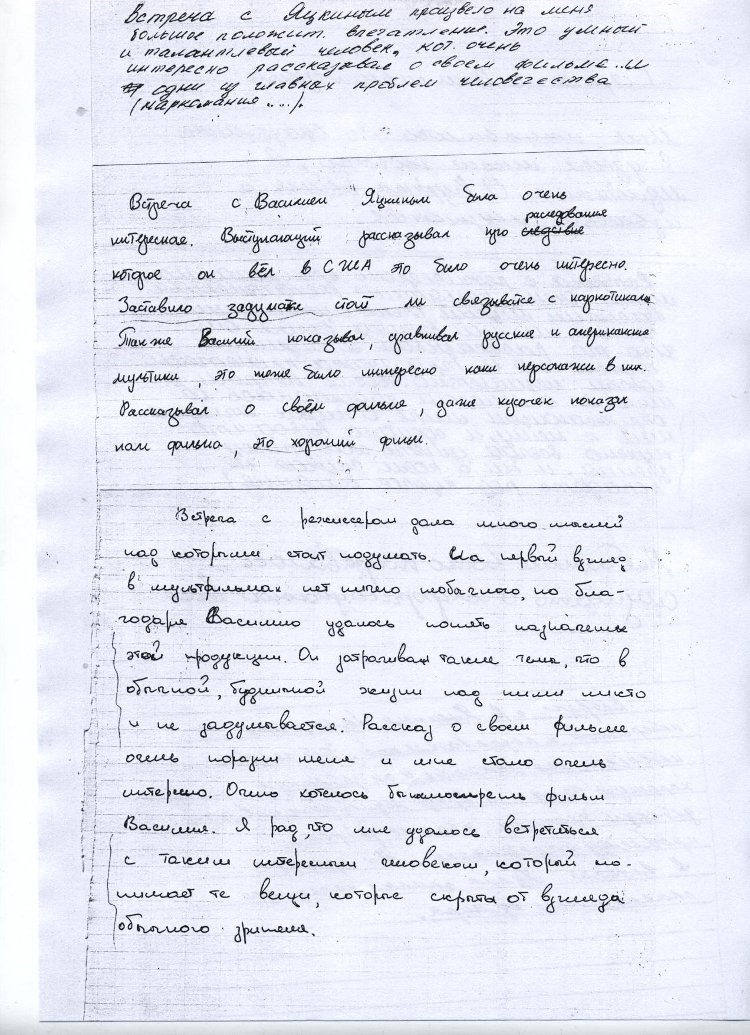 Встреча с Яцкиным произвело на меня
большое положит. впечатление. Это умный
и талантлевый человек, кот. очень
интересно рассказовал о своем фильме.. и
одни из главных проблем человечества
(наркомания ....).
Встреча с Василием Яцкиным была очень
интересная. Выступающий рассказывал про следствие раследование
которое он вёл в США это было очень интересно.
Заставило задумат стоит ли связыватся с наркотиками
Также Василий показывал, сравнивал русские и американские
мультики, это тоже было интересно каки персонажи в них.
Рассказывал о своём фильме, даже кусочек показал
нам фильма, это хороший фильм.
Встреча с режиссером дала много мыслей
над которыми стоит подумать. На первый взгляд,
в мультфильмах нет ничего необычного, но бла-
годаря Василию удалось понять назначение
этой продукции. Он затрагивал такие темы, что в
обычной, будничной жизни над ними никто
и не задумывается. Рассказ о своем фильме
очень поразил меня и мне стало очень
интересно. Очень хотелось бы посмотреть фильм
Василия. Я рад, что мне удалось встретиться
с таким интересным человеком, который по-
нимает те вещи, которые скрыты от взгляда
обычного зрителя.